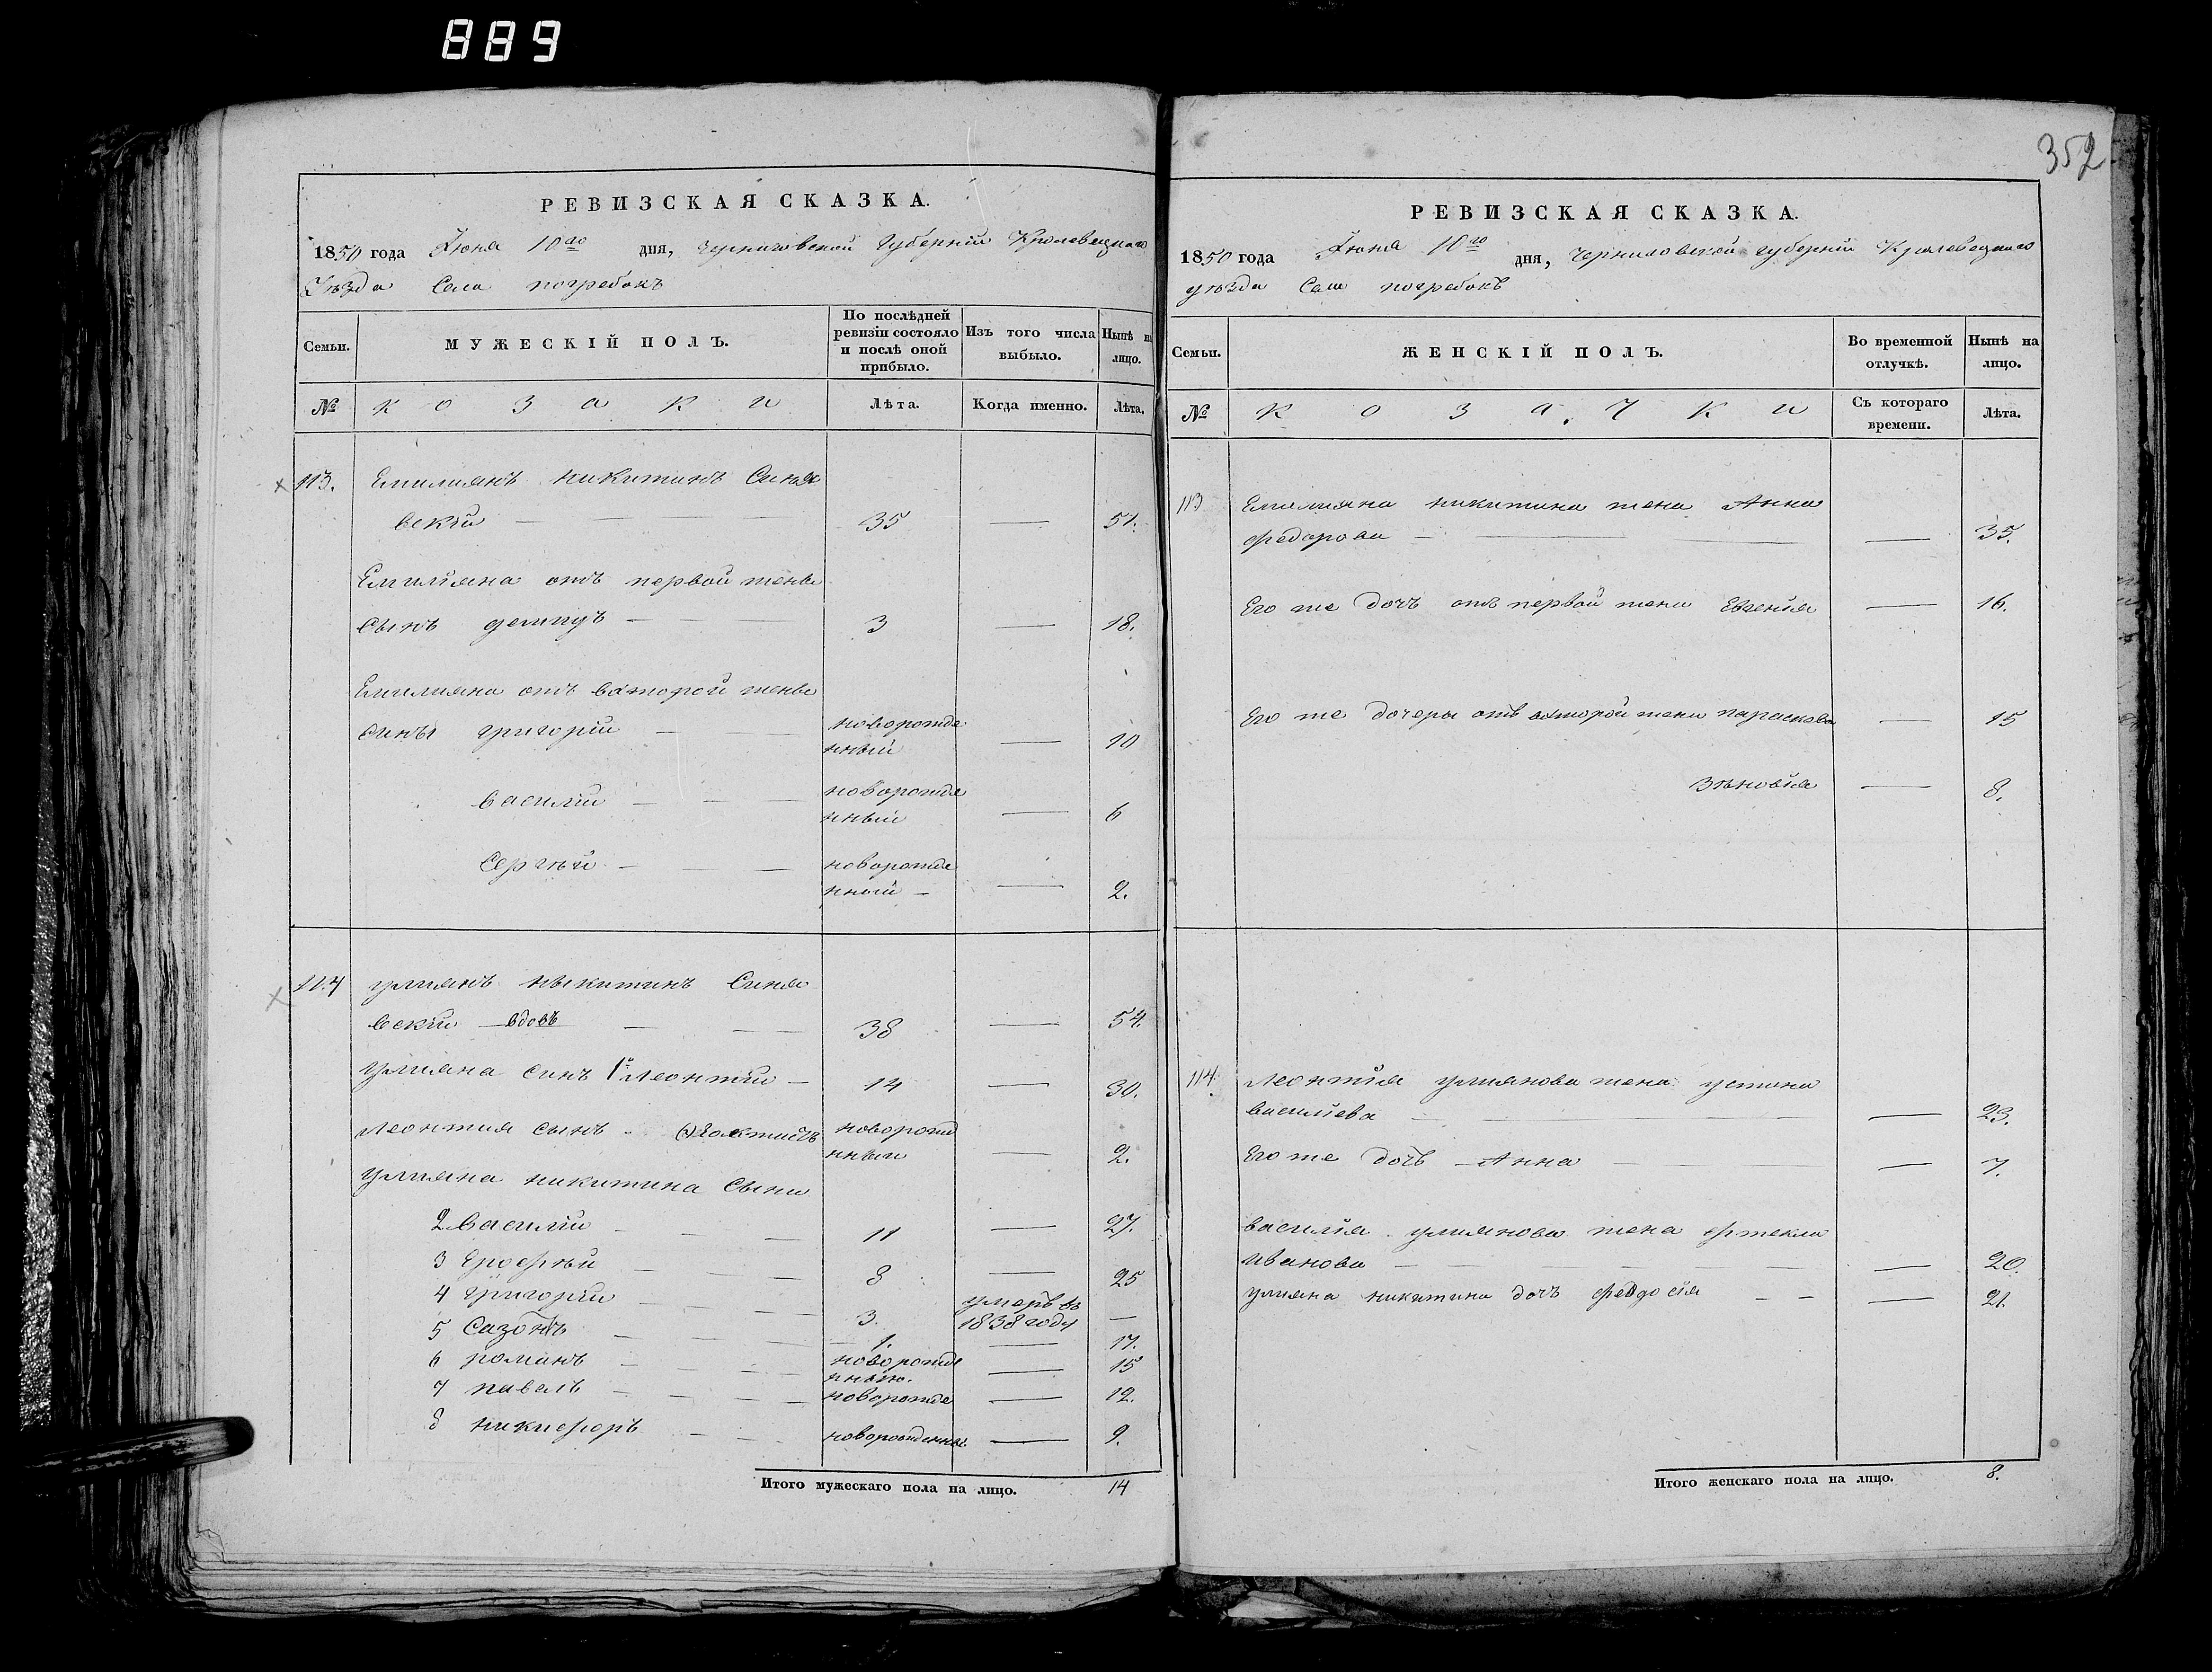 889
352
РЕВИЗСКАЯ СКАЗКА.
1850 года Июня 10го дня, Черниговской Губернiи Кролевецкого
Уезда Села погребокъ
Семьи. МУЖЕСКIЙ ПОЛЪ. По послѣдней ревизiи состояло и послѣ оной прибыло. Изъ того числа выбыло. Нынѣ на лицо.
№ козаки Лѣта. Когда именно. Лѣта.
113. Емилианъ никитинъ Синя
вскiй — 35 — 51.
Емилiяна отъ первой жены
Сынъ — 3 — 18.
Емилияна отъ второй жены
сины григорiй — новорожде
нный — 10
василiй — новорожде
нный — 6
Сергѣй — новорожде
нный — 2.
114 улиянъ никитинъ Синя
вскiй вдовъ — 38 — 54.
улияна синъ 1й Леонтiй — 14 — 30.
Леонтия сынъ новорожд
нный — 2.
улияна никитина Сыни
2 василiй — 11 — 27.
3 Ерофѣй — 8 — 25
4 григорiй — 3. умеръ въ
1838 году —
5 Сазонъ — 1. — 17.
6 романъ — новорожде
нный. — 15
7 павелъ — новорожде — 12.
8 никифоръ — новорожденны — 9.
Итого мужескаго пола на лицо. 14
РЕВИЗСКАЯ СКАЗКА.
1850 года Июня 10го дня, Черниговской губернiи Кролевецкого
уѣзда Села погребокъ
Семьи. ЖЕНСКIЙ ПОЛЪ. Во временной отлучкѣ. Нынѣ на лицо.
№ козачки Съ котораго времени. Лѣта.
113 Емилияна никитина жена Анна
федорова — 35.
Его же дочъ отъ первой жени Евгенiя — 16.
Его же дочеры отъ второй жени параскева — 15
Зѣновiя — 8.
114. Леонтiя улиянова жена устина
василiева — 23.
Его же дочъ — Анна — 7.
василiя улиянова жена фтекла
иванова — 20.
улияна никитина дочъ феодосiя — 21.
Итого женскаго пола на лицо. 8.